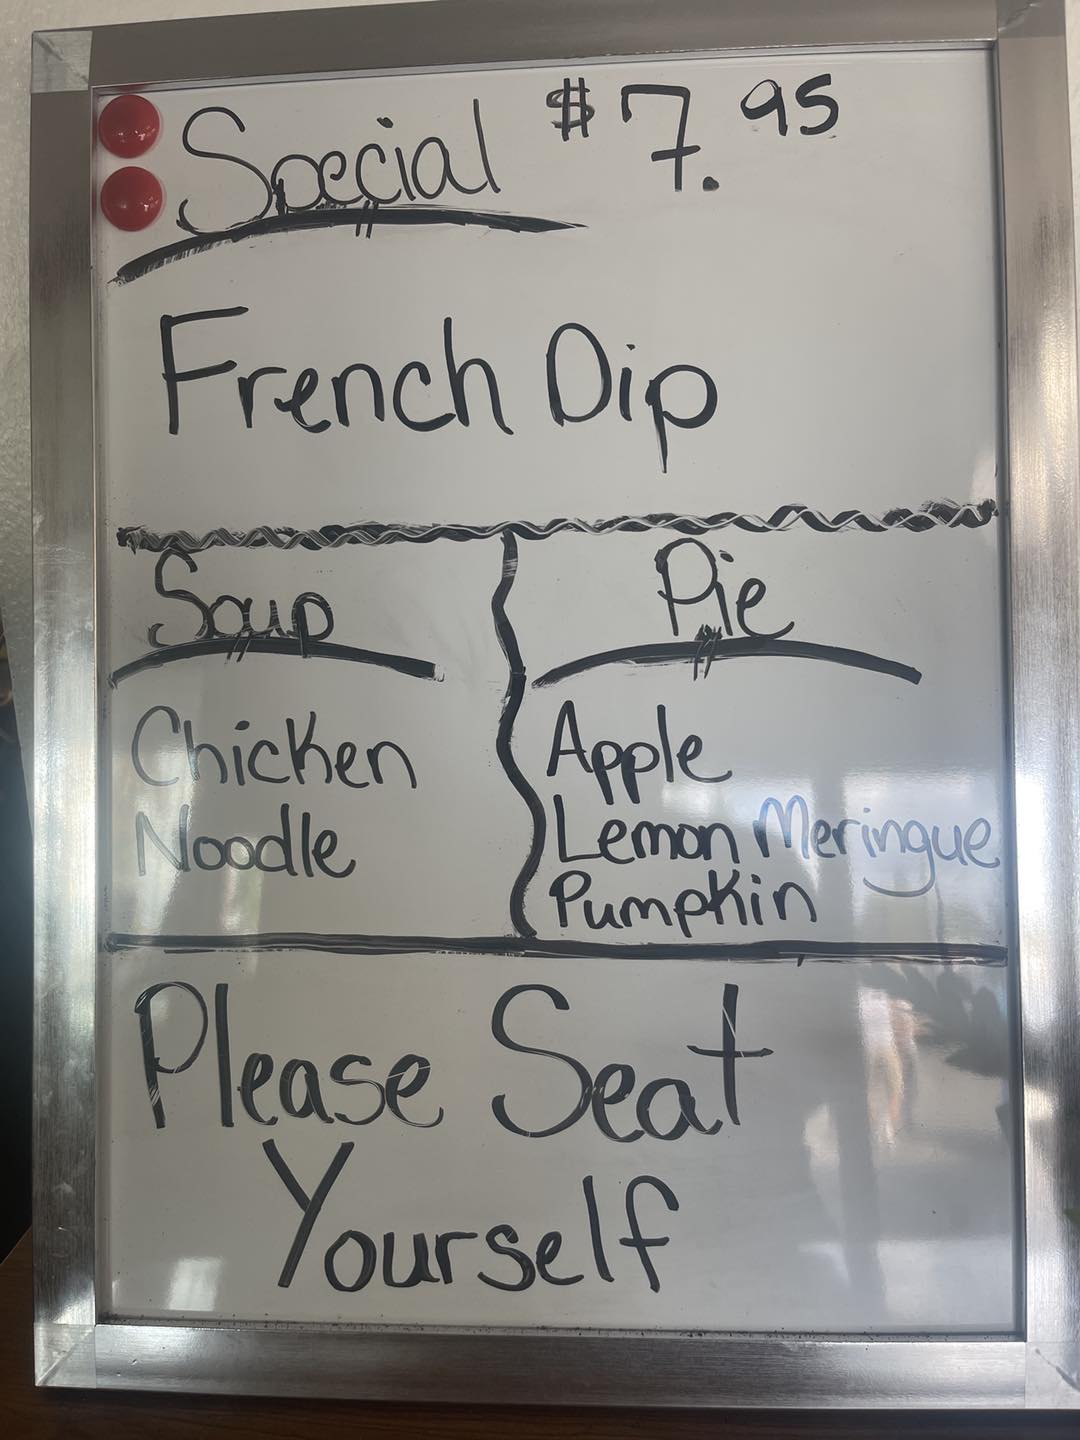 Special $7.95
French Dip
Soup
Chicken
Noodle
Pie
Apple
Lemon Meringue
Pumpkin
Please Seat
Yourself